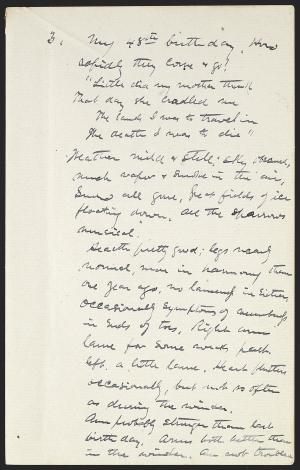 3. My 48th birthday. How
rapidly they come & go!
"Little did my mother think
That day she cradled me
The lands I was to travel in
The death I was to die"
Weather mild & still; sky, obscured,
much vapor & smoke in the air,
Snow all gone, great fields of ice
floating down, all the sparrows
musical.
Health pretty good; legs nearly
normal, more in harmony than
one year ago, no lameness in either,
occasionally symptoms of numbness
in ends of toes. Right arm
lame for some weeks past.
left, a little lame. Heart flutters
occasionally, but not so often
as during the winter.
Am probably stronger than last
birthday. Arms both better than
in the winter. Am not troubled